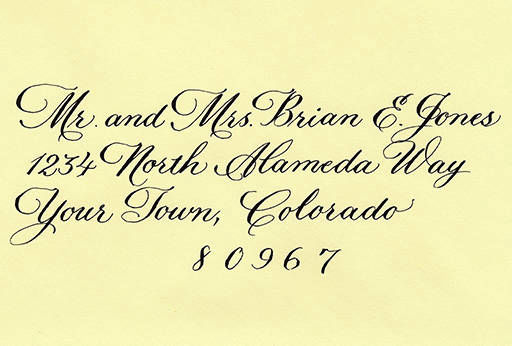 Mr. and Mrs. Brian E. Jones
1234 North Alameda Way
Your Town, Colorado
80967